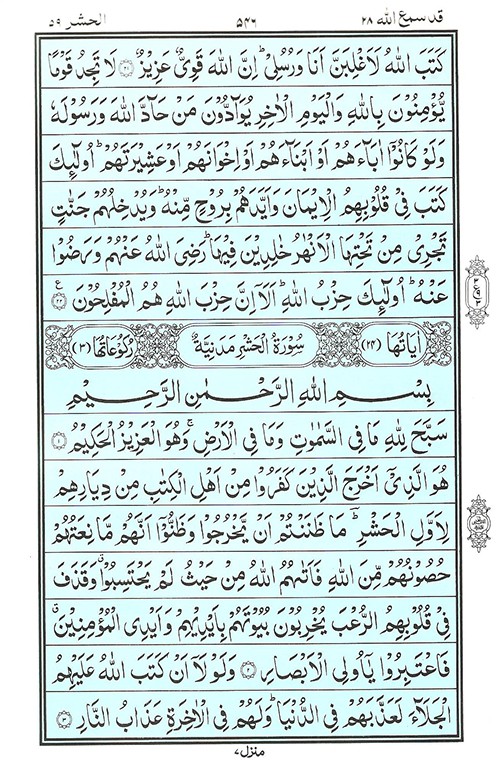 قد سمع الله ٢٨
٥٤٦
الحشر ٥٩
كَتَبَ اللّٰهُ لَاَغْلِبَنَّ اَنَا وَرُسُلِىْ ؕ اِنَّ اللّٰهَ قَوِىٌّ عَزِيْزٌ ﴿۲۱﴾ لَا تَجِدُ قَوْمًا
يُّؤْمِنُوْنَ بِاللّٰهِ وَالْيَوْمِ الْاٰخِرِ يُوَآدُّوْنَ مَنْ حَآدَّ اللّٰهَ وَرَسُوْلَهٗ
وَلَوْ كَانُوْۤا اٰبَآءَهُمْ اَوْ اَبْنَآءَهُمْ اَوْ اِخْوَانَهُمْ اَوْ عَشِيْرَتَهُمْ ؕ اُولٰٓئِكَ
كَتَبَ فِىْ قُلُوْبِهِمُ الْاِيْمَانَ وَاَيَّدَهُمْ بِرُوْحٍ مِّنْهُ ؕ وَيُدْخِلُهُمْ جَنّٰتٍ
تَجْرِىْ مِنْ تَحْتِهَا الْاَنْهٰرُ خٰلِدِيْنَ فِيْهَا ؕ رَضِىَ اللّٰهُ عَنْهُمْ وَرَضُوْا
عَنْهُ ؕ اُولٰٓئِكَ حِزْبُ اللّٰهِ ؕ اَلَاۤ اِنَّ حِزْبَ اللّٰهِ هُمُ الْمُفْلِحُوْنَ ﴿۲۲﴾ ع
اٰيَاتُهَا (٢٤) سُوْرَةُ الْحَشْرِ مَدَنِيَّةٌ رُكُوْعَاتُهَا (٣)
بِسْمِ اللّٰهِ الرَّحْمٰنِ الرَّحِيْمِ
سَبَّحَ لِلّٰهِ مَا فِى السَّمٰوٰتِ وَمَا فِى الْاَرْضِ ۚ وَهُوَ الْعَزِيْزُ الْحَكِيْمُ ﴿۱﴾
هُوَ الَّذِىْۤ اَخْرَجَ الَّذِيْنَ كَفَرُوْا مِنْ اَهْلِ الْكِتٰبِ مِنْ دِيَارِهِمْ
لِاَوَّلِ الْحَشْرِ ؔؕ مَا ظَنَنْتُمْ اَنْ يَّخْرُجُوْا وَظَنُّوْۤا اَنَّهُمْ مَّانِعَتُهُمْ
حُصُوْنُهُمْ مِّنَ اللّٰهِ فَاَتٰٮهُمُ اللّٰهُ مِنْ حَيْثُ لَمْ يَحْتَسِبُوْا وَقَذَفَ
فِىْ قُلُوْبِهِمُ الرُّعْبَ يُخْرِبُوْنَ بُيُوْتَهُمْ بِاَيْدِيْهِمْ وَاَيْدِى الْمُؤْمِنِيْنَ ۙ
فَاعْتَبِرُوْا يٰۤاُولِى الْاَبْصَارِ ﴿۲﴾ وَلَوْلَاۤ اَنْ كَتَبَ اللّٰهُ عَلَيْهِمُ
الْجَلَآءَ لَعَذَّبَهُمْ فِى الدُّنْيَا ؕ وَلَهُمْ فِى الْاٰخِرَةِ عَذَابُ النَّارِ ﴿۳﴾
منزل ٧